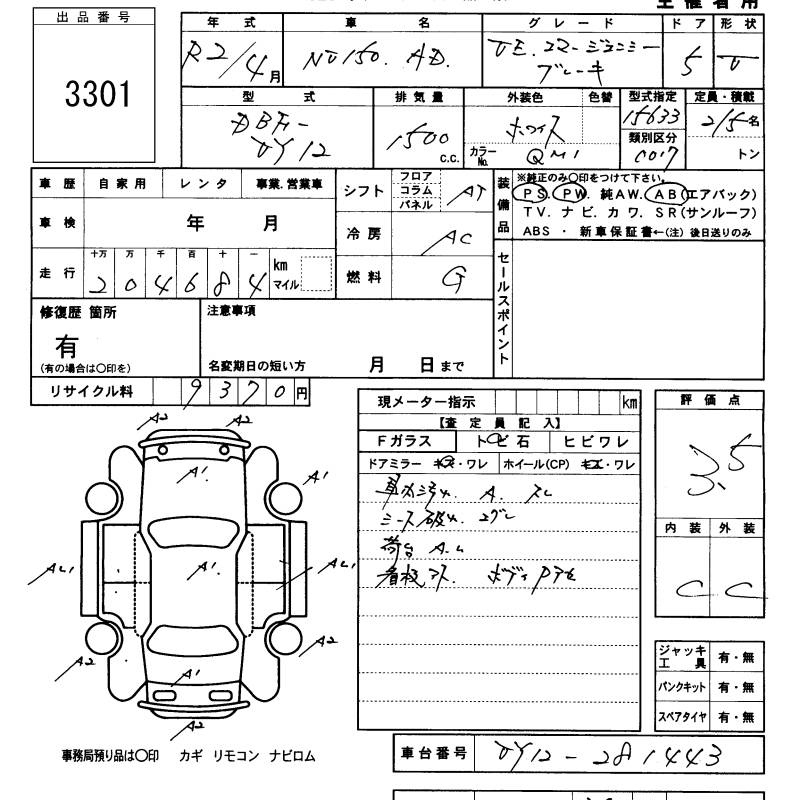 主催者用
出品番号
3301
年式 車名 グレード ドア 形状
R2/4月 NV150. AD. VE. エマージェンシーブレーキ 5 V
型式 排気量 外装色 色替 型式指定 定員・積載
DBF-VY12 1500 c.c. ホワイト 15633 2/5名
カラーNo. QM1 類別区分 0017 トン
車歴 自家用 レンタ 事業.営業車
シフト フロア コラム パネル AT
車検 年 月
冷房 AC
走行 十万 万 千 百 十 一
204684 km マイル
燃料 G
装備品
※純正のみ○印をつけて下さい。
PS. PW. 純AW. AB(エアバック)
TV. ナビ. カワ. SR(サンルーフ)
ABS ・ 新車保証書←(注) 後日送りのみ
セールスポイント
修復歴 箇所
有
(有の場合は○印を)
注意事項
名変期日の短い方 月 日まで
リサイクル料 9370円
現メーター指示 km
【査定員記入】
Fガラス トビ石 ヒビワレ
ドアミラー キズ・ワレ ホイール(CP) キズ・ワレ
シート破れ コゲ
荷台 A.
評価点
3.5
内装 外装
C C
A2 A2
A1
A1
A1
A2
A2
A1
A2
ジャッキ工具 有・無
パンクキット 有・無
スペアタイヤ 有・無
事務局預り品は○印 カギ リモコン ナビロム
車台番号 VY12-281443